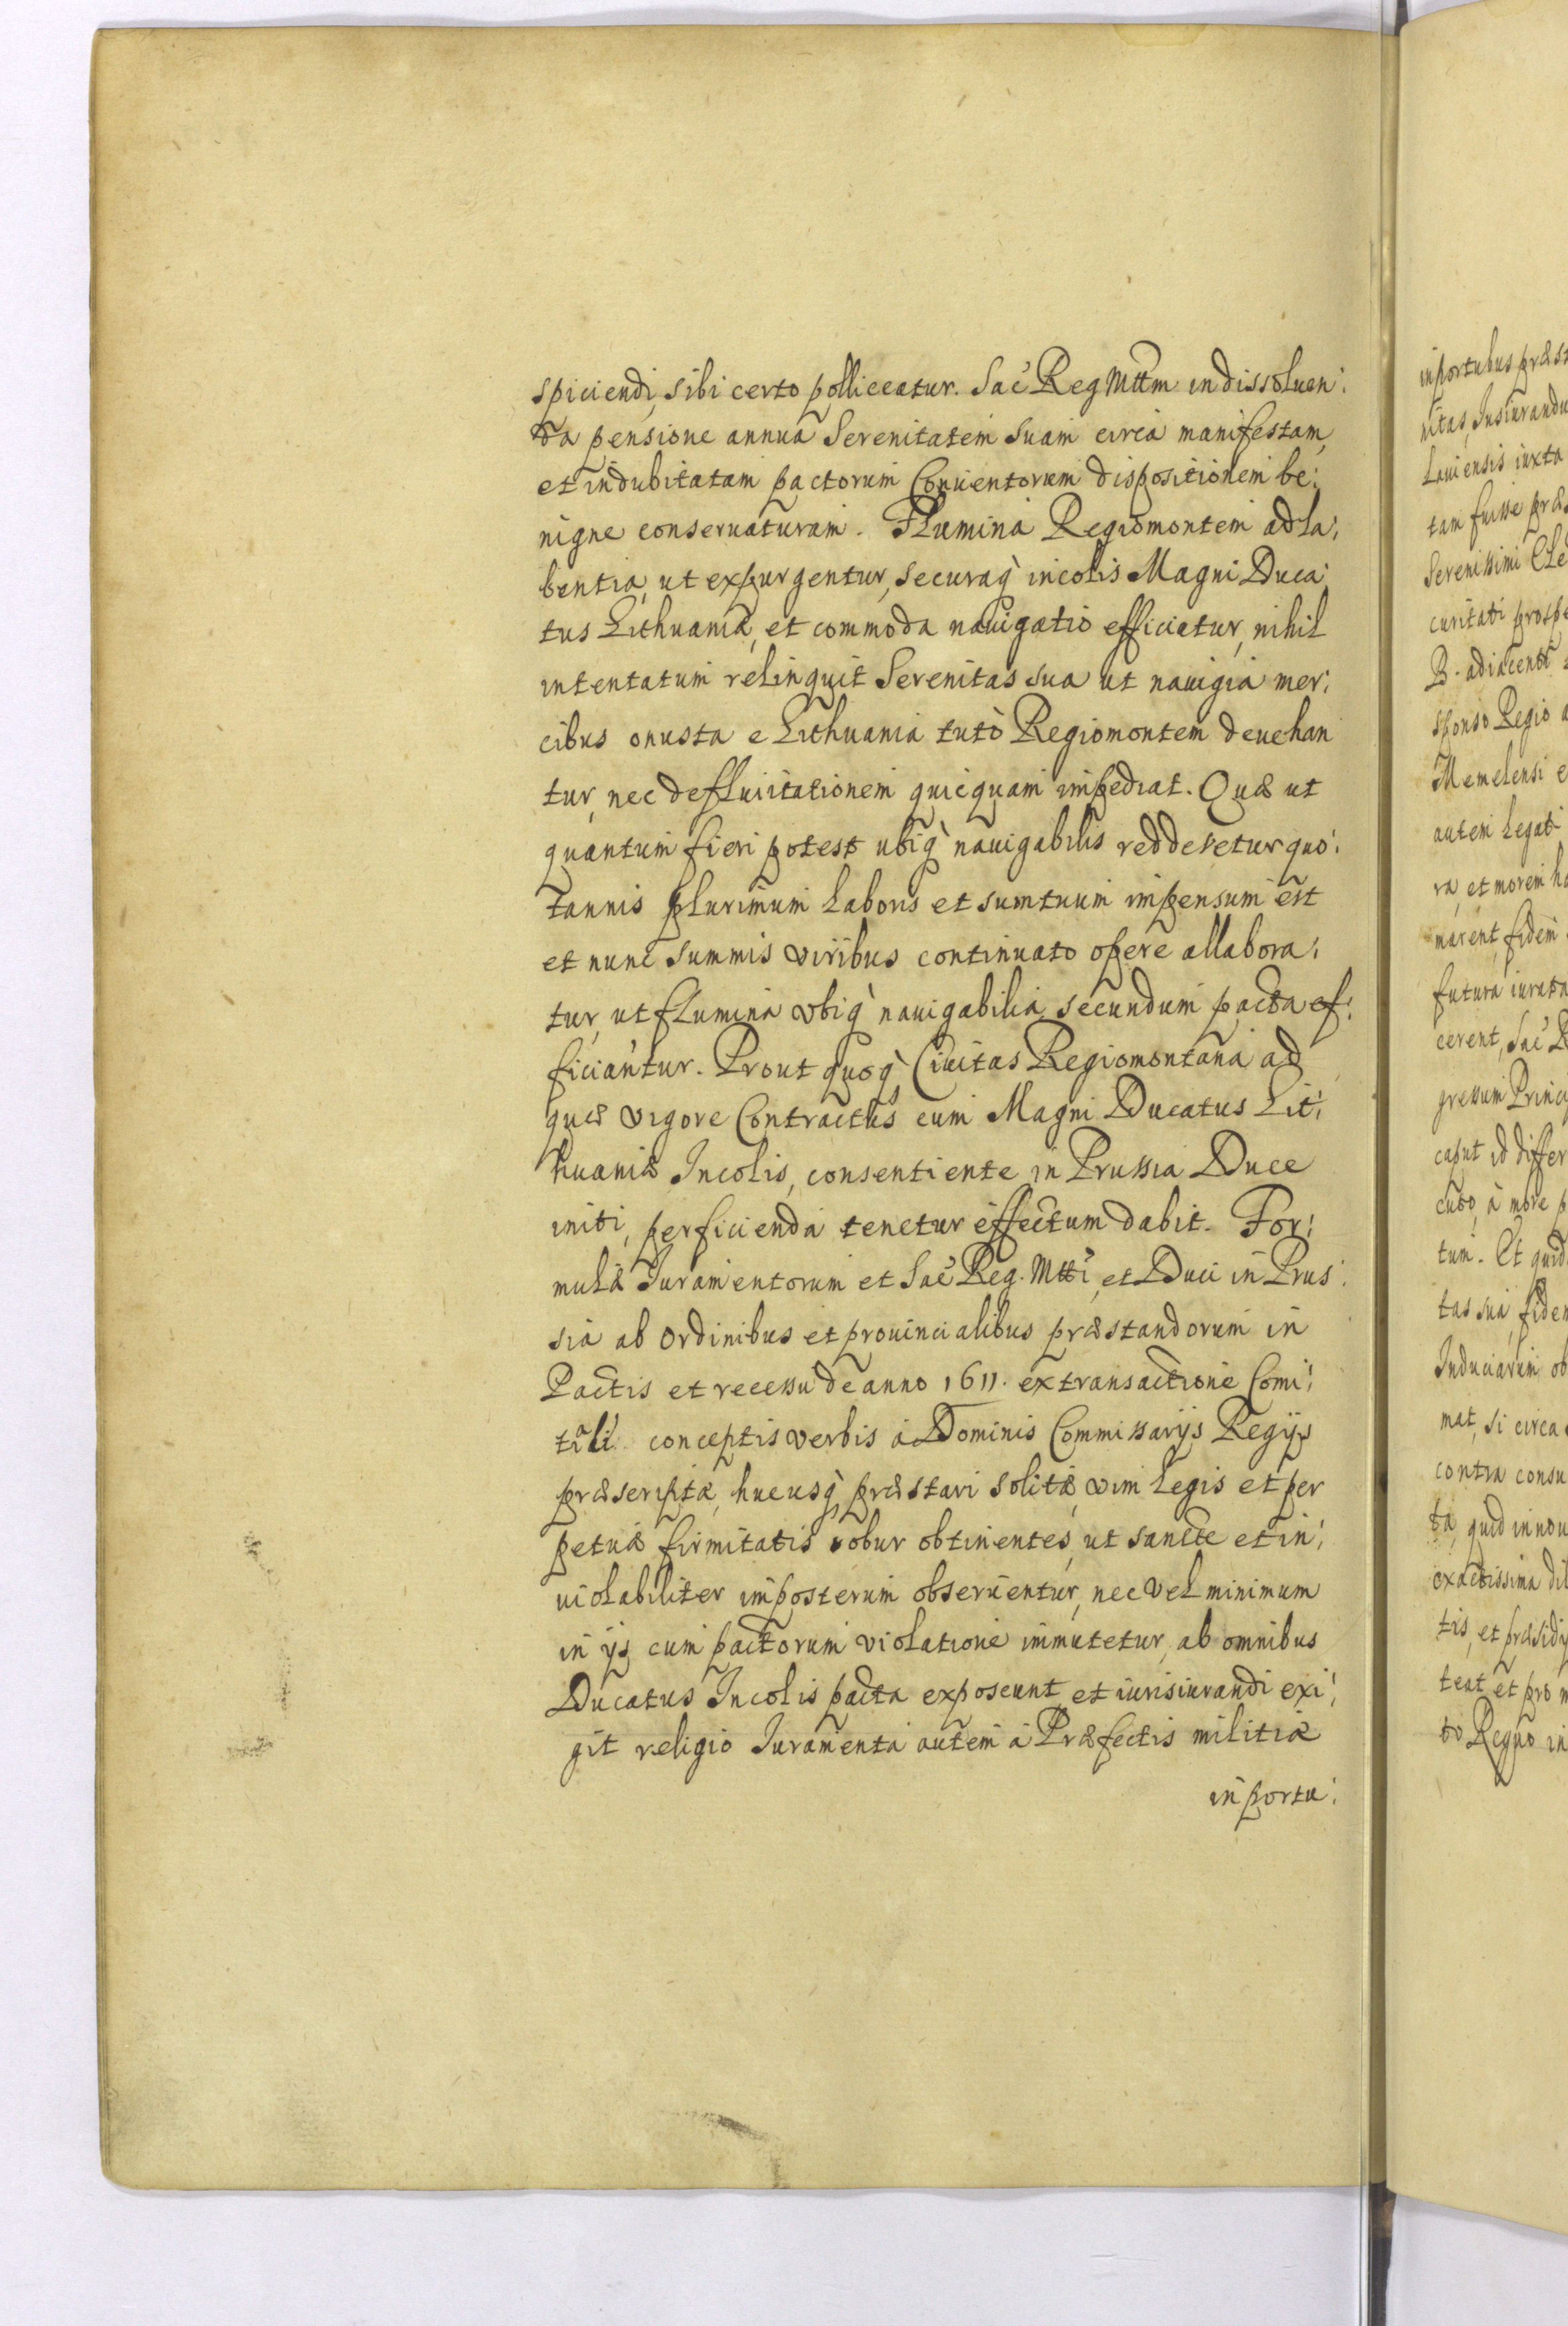 spiciendi, sibi certo polliceatur. Sac Reg Mttm in dissoluen:
da pensione annua Serenitatem suam circa manifestam,
et indubitatam pactorum Conuentorum dispositionem be:
nigne conseruaturam. Flumina Regiomontem adla:
bentia, ut expurgentur, securaq incolis Magni Duca:
tus Lithuaniæ, et commoda nauigatio efficiatur, nihil
intentatum relinquit Serenitas sua ut nauigia mer:
cibus onusta e Lithuania tutò Regiomontem deuehan
tur, nec defluitationem quicquam impediat. Quæ ut
quantum fieri potest ubiq nauigabilis redderetur quo:
tannis plurimum laboris et sumtuum impensum est
et nunc summis viribus continuato opere allabora:
tur, ut flumina vbiq nauigabilia secundum pacta ef:
ficiantur. Prout quoq Ciuitas Regiomontana ad
quæ vigore Contractus cum Magni Ducatus Lit:
huaniæ Incolis, consentiente in Prussia Duce
initi, perficienda tenetur effectum dabit. For:
mulæ Juramentorum et Sac Reg. Mtti, et Duci in Prus:
sia ab ordinibus et prouincialibus præstandorum in
Pactis et recessu de anno 1611. ex transactione Comi:
tiali conceptis verbis à Dominis Commissarijs Regijs
præscriptæ, hucusq præstari solitæ, vim legis et per
petuæ firmitatis robur obtinentes, ut sancte et in:
uiolabiliter imposterum obseruentur, nec vel minimum
in ijs cum pactorum violatione immutetur, ab omnibus
Ducatus Incolis pacta exposcunt, et iurisiurandi exi:
git religio Juramenta autem à Præfectis militiæ
in portu:
in portubus præst
nitas, Jusiurandu
Lauiensis iuxta
tam fuisse præs
Serenissimi Ele
curitati prospe
B. adiacenti
sponso Regio a
Memelensi e
autem Legati
ra, et morem ha
narent, fidem
futura iurata
cerent, Sac R
gressum Princi
caput id differ
cuto, à more p
tum. Et quid
tas sua, fidem
Induciarum ob
mat, si circa
contra consu
ta, quid innou
exactissima dil
tis, et præsidij
teat et pro m
to Regno in